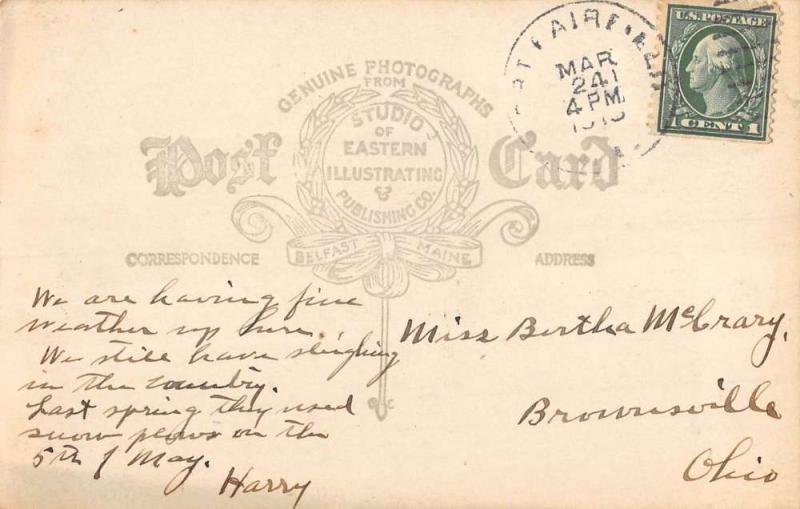 GENUINE PHOTOGRAPHS
FROM
STUDIO
OF
EASTERN
ILLUSTRATING
&
PUBLISHING CO.
BELFAST MAINE
Post Card
CORRESPONDENCE
ADDRESS
FAIRFIELD
MAR
24
4 PM
U.S. POSTAGE
1 CENT 1
We are having fine
weather up here.
We still have sleighing
in the country.
Last spring they used
snow plows on the
5th of May.
Harry
Miss Bertha McCrary,
Brownsville
Ohio